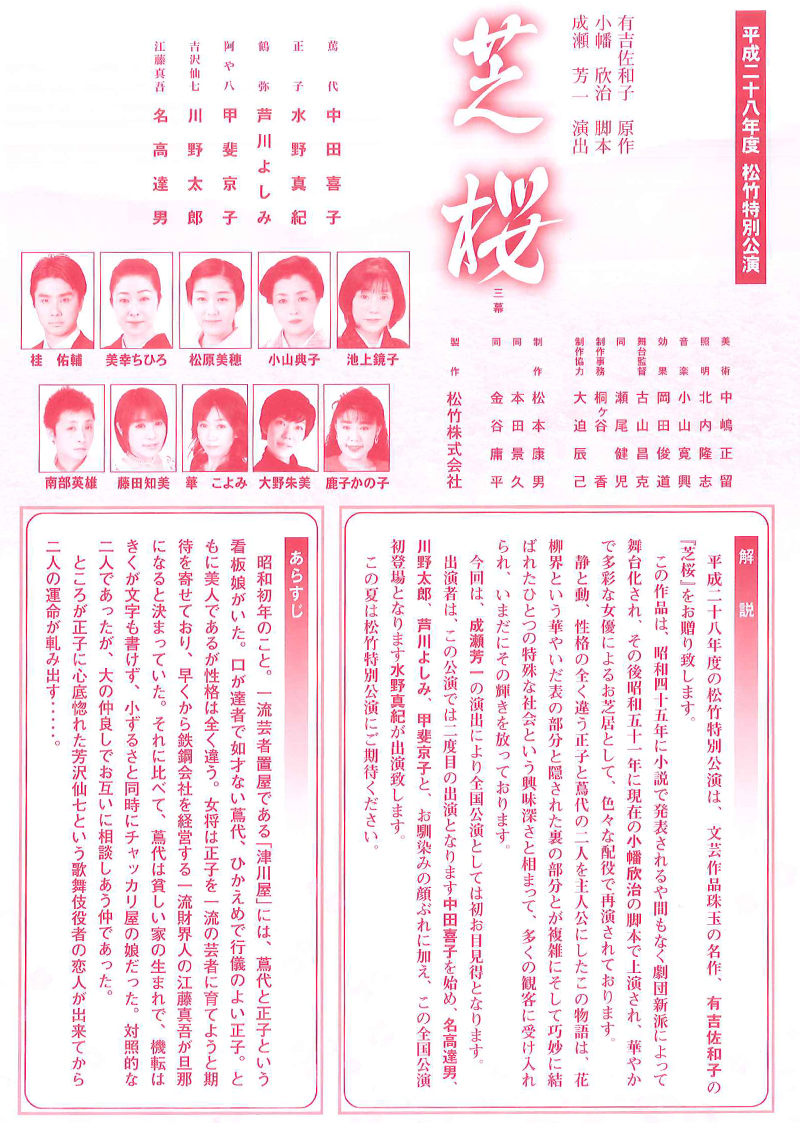 平成二十八年度 松竹特別公演
有吉佐和子 原作
小幡欣治 脚本
成瀬芳一 演出
芝桜
三幕
蔦代 中田喜子
正子 水野真紀
鶴弥 芦川よしみ
阿や八 甲斐京子
吉沢仙七 川野太郎
江藤真吾 名高達男
池上鏡子
小山典子
松原美穂
美幸ちひろ
桂 佑輔
鹿子かの子
大野朱美
華 こよみ
藤田知美
南部英雄
美術 中嶋正留
照明 北内隆志
音楽 小山寛興
効果 岡田俊道
舞台監督 古山昌克
同 瀬尾健児
制作事務 桐ヶ谷 香
制作協力 大迫辰己
制作 松本康男
同 本田景久
同 金谷庸平
製作 松竹株式会社
解説
平成二十八年度の松竹特別公演は、文芸作品珠玉の名作、有吉佐和子の
『芝桜』をお贈り致します。
この作品は、昭和四十五年に小説で発表されるや間もなく劇団新派によって
舞台化され、その後昭和五十一年に現在の小幡欣治の脚本で上演され、華やか
で多彩な女優によるお芝居として、色々な配役で再演されております。
静と動、性格の全く違う正子と蔦代の二人を主人公にしたこの物語は、花
柳界という華やいだ表の部分と隠された裏の部分とが複雑にそして巧妙に結
ばれたひとつの特殊な社会という興味深さと相まって、多くの観客に受け入れ
られ、いまだにその輝きを放っております。
今回は、成瀬芳一の演出により全国公演としては初お目見得となります。
出演者は、この公演では二度目の出演となります中田喜子を始め、名高達男、
川野太郎、芦川よしみ、甲斐京子と、お馴染みの顔ぶれに加え、この全国公演
初登場となります水野真紀が出演致します。
この夏は松竹特別公演にご期待ください。
あらすじ
昭和初年のこと。一流芸者置屋である「津川屋」には、蔦代と正子という
看板娘がいた。口が達者で如才ない蔦代、ひかえめで行儀のよい正子。と
もに美人であるが性格は全く違う。女将は正子を一流の芸者に育てようと期
待を寄せており、早くから鉄鋼会社を経営する一流財界人の江藤真吾が旦那
になると決まっていた。それに比べて、蔦代は貧しい家の生まれで、機転は
きくが文字も書けず、小ずるさと同時にチャッカリ屋の娘だった。対照的な
二人であったが、大の仲良しでお互いに相談しあう仲であった。
ところが正子に心底惚れた芳沢仙七という歌舞伎役者の恋人が出来てから
二人の運命が軋み出す……。